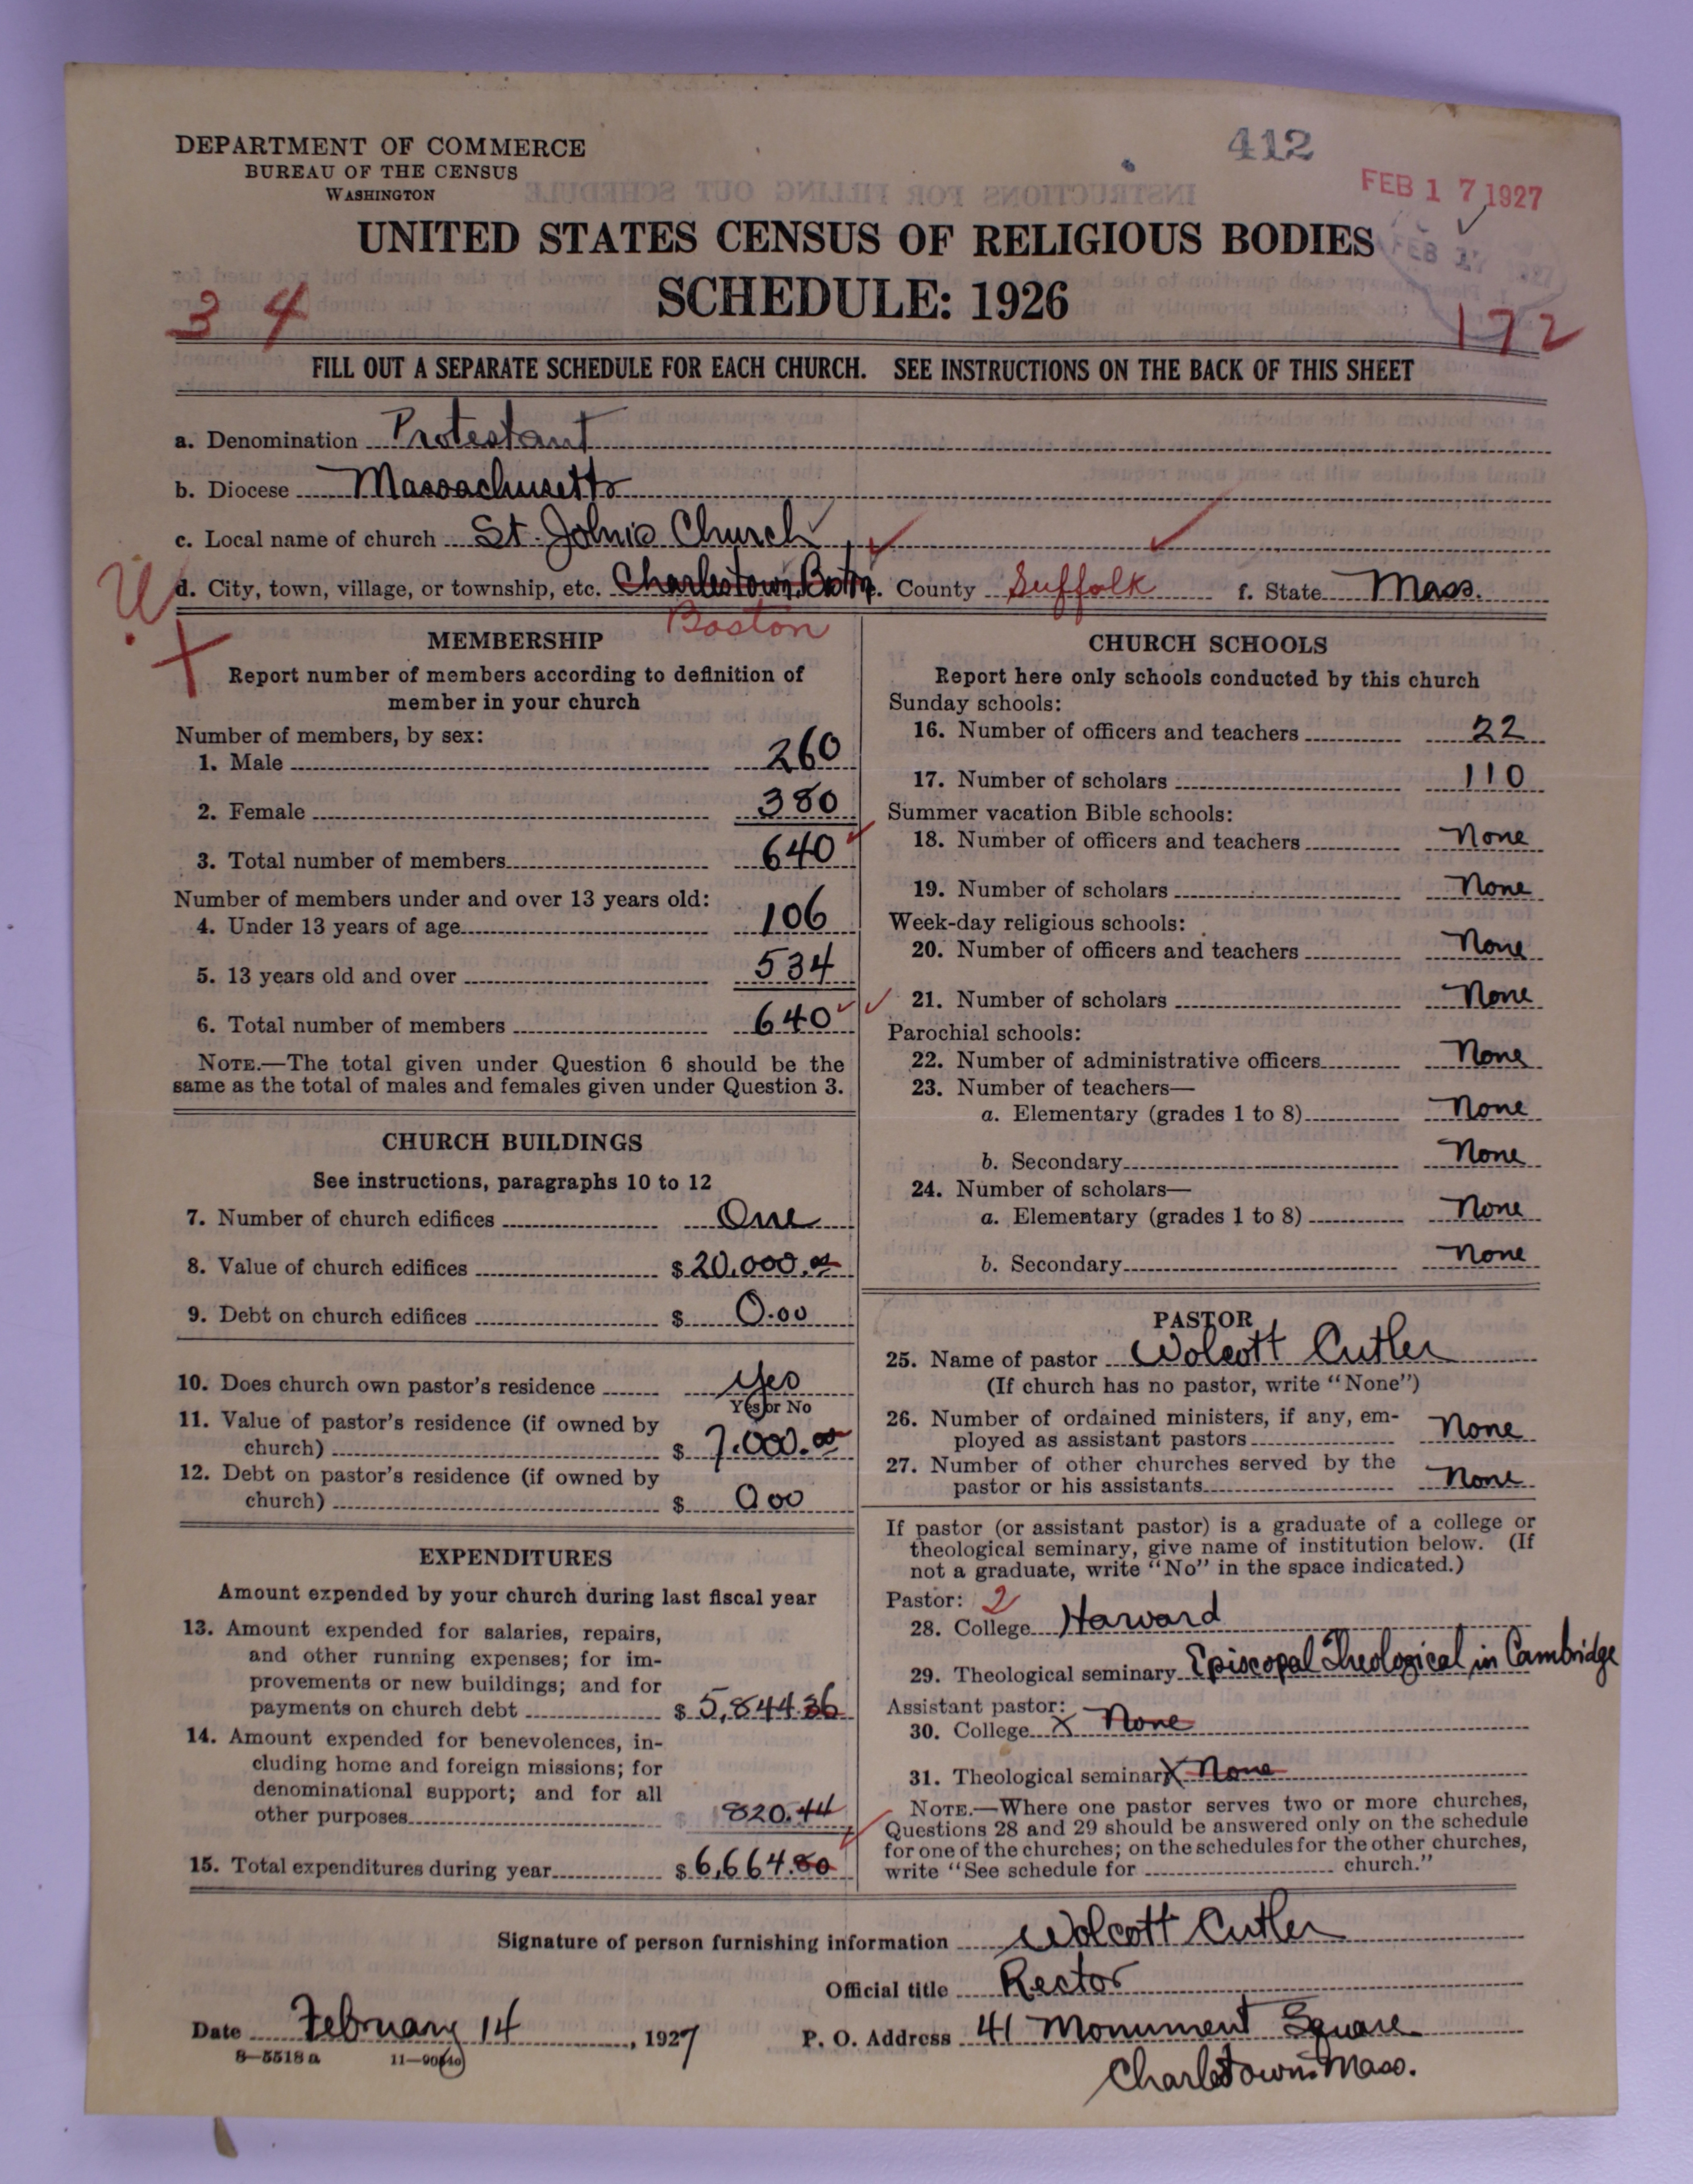 DEPARTMENT OF COMMERCE
BUREAU OF THE CENSUS
WASHINGTON
412
FEB 17 1927
UNITED STATES CENSUS OF RELIGIOUS BODIES
SCHEDULE: 1926
34
172
FILL OUT A SEPARATE SCHEDULE FOR EACH CHURCH. SEE INSTRUCTIONS ON THE BACK OF THIS SHEET
a. Denomination Protestant
b. Diocese Massachusetts
c. Local name of church St. John's Church
d. City, town, village, or township, etc. Charlestown, Boston e. County Suffolk f. State Mass.
Boston
MEMBERSHIP
Report number of members according to definition of
member in your church
Number of members, by sex:
1. Male 260
2. Female 380
3. Total number of members 640
Number of members under and over 13 years old:
4. Under 13 years of age 106
5. 13 years old and over 534
6. Total number of members 640
NOTE.—The total given under Question 6 should be the
same as the total of males and females given under Question 3.
CHURCH BUILDINGS
See instructions, paragraphs 10 to 12
7. Number of church edifices One
8. Value of church edifices $ 20,000.00
9. Debt on church edifices $ 0.00
10. Does church own pastor's residence Yes
Yes or No
11. Value of pastor's residence (if owned by
church) $ 7,000.00
12. Debt on pastor's residence (if owned by
church) $ 0.00
EXPENDITURES
Amount expended by your church during last fiscal year
13. Amount expended for salaries, repairs,
and other running expenses; for im-
provements or new buildings; and for
payments on church debt $ 5,844.36
14. Amount expended for benevolences, in-
cluding home and foreign missions; for
denominational support; and for all
other purposes $ 820.44
15. Total expenditures during year $ 6,664.80
CHURCH SCHOOLS
Report here only schools conducted by this church
Sunday schools:
16. Number of officers and teachers 22
17. Number of scholars 110
Summer vacation Bible schools:
18. Number of officers and teachers None
19. Number of scholars None
Week-day religious schools:
20. Number of officers and teachers None
21. Number of scholars None
Parochial schools:
22. Number of administrative officers None
23. Number of teachers—
a. Elementary (grades 1 to 8) None
b. Secondary None
24. Number of scholars—
a. Elementary (grades 1 to 8) None
b. Secondary None
PASTOR
25. Name of pastor Wolcott Cutler
(If church has no pastor, write "None")
26. Number of ordained ministers, if any, em-
ployed as assistant pastors None
27. Number of other churches served by the
pastor or his assistants None
If pastor (or assistant pastor) is a graduate of a college or
theological seminary, give name of institution below. (If
not a graduate, write "No" in the space indicated.)
Pastor: 2
28. College Harvard
29. Theological seminary Episcopal Theological in Cambridge
Assistant pastor:
30. College X None
31. Theological seminary X None
NOTE.—Where one pastor serves two or more churches,
Questions 28 and 29 should be answered only on the schedule
for one of the churches; on the schedules for the other churches,
write "See schedule for church."
Signature of person furnishing information Wolcott Cutler
Official title Rector
Date February 14, 1927 P. O. Address 41 Monument Square
8-5518 a
Charlestown. Mass.